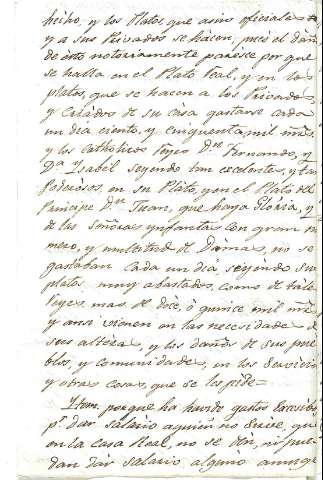 hecho, y los Platos, que a sus oficiales
y a sus Privados se hacen, pues el daño
de esto notoriamente parésce por que
se halla en el Plato Real, y en los
platos, que se hacen a los Privados,
y Criados de su casa gastarse cada
un dia ciento, y cinquenta mil mrs,
y los Catholicos Reyes Dn. Fernando, y
Da. Ysabel seyendo tan excelentes, y tan
Poderosos, en su Plato, y en el Plato del
Principe Dn. Juan, que haya Gloria, y
de las Señoras ynfantas con gran nu
mero, y multitud de Damas, no se
gastaban cada un dia seyendo sus
platos muy abastados, como de tales
Reyes, mas de doce, ó quince mil mrs
y ansi vienen en las necesidades de
sus alteza, y los daños de sus pue
blos, y comunidades, en los Servicios
y otras cosas, que se les pide=
Ytem, porque ha havido gastos Excesivos
pr. dar salario aquien no sirve, que
en la casa Real, no se den, ni pue
dan dar salario alguno aunque